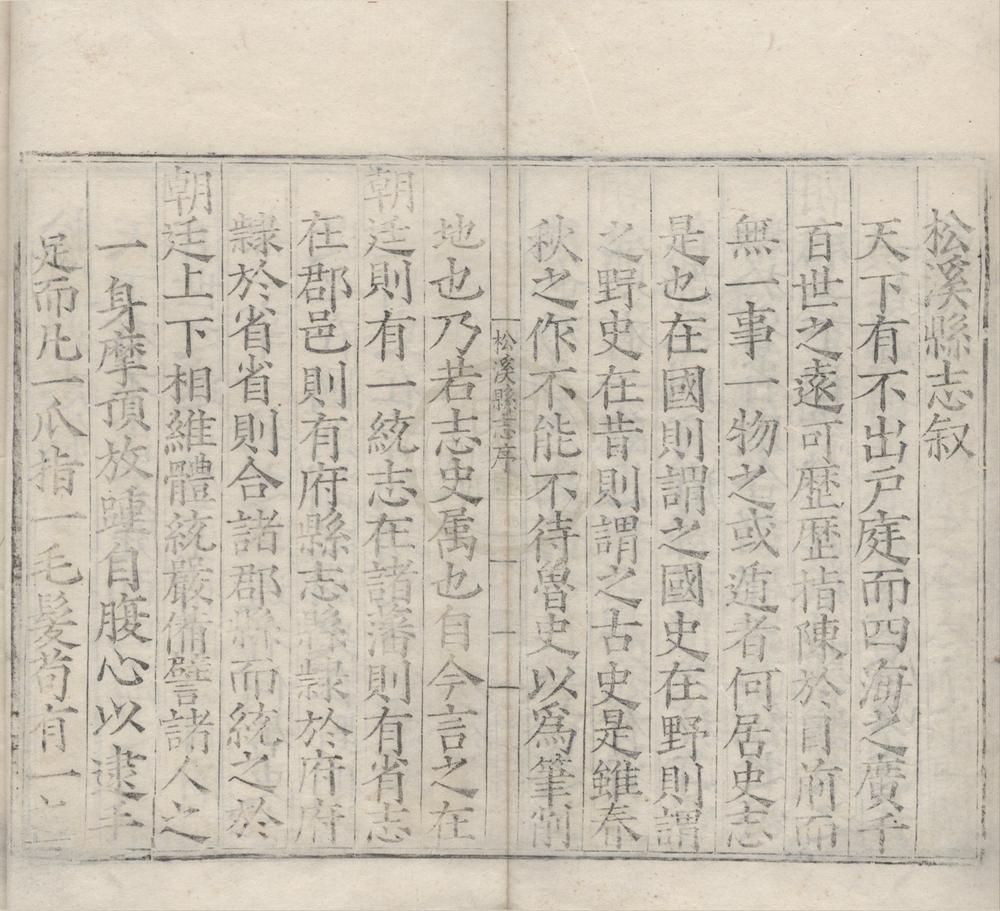 松溪縣志叙
天下有不出戸庭而四海之廣千
百世之遠可歷歷指陳於目前而
無一事一物之或遁者何居史志
是也在國則謂之國史在野則謂
之野史在昔則謂之古史是雖春
秋之作不能不待魯史以爲筆削
松溪縣志序 一
地也乃若志史属也自今言之在
朝廷則有一統志在諸藩則有省志
在郡邑則有府縣志縣隸於府府
隸於省省則合諸郡縣而統之於
朝廷上下相維體統嚴備譬諸人之
一身摩頂放踵自腹心以逮手
足而凡一爪指一毛髮苟有一